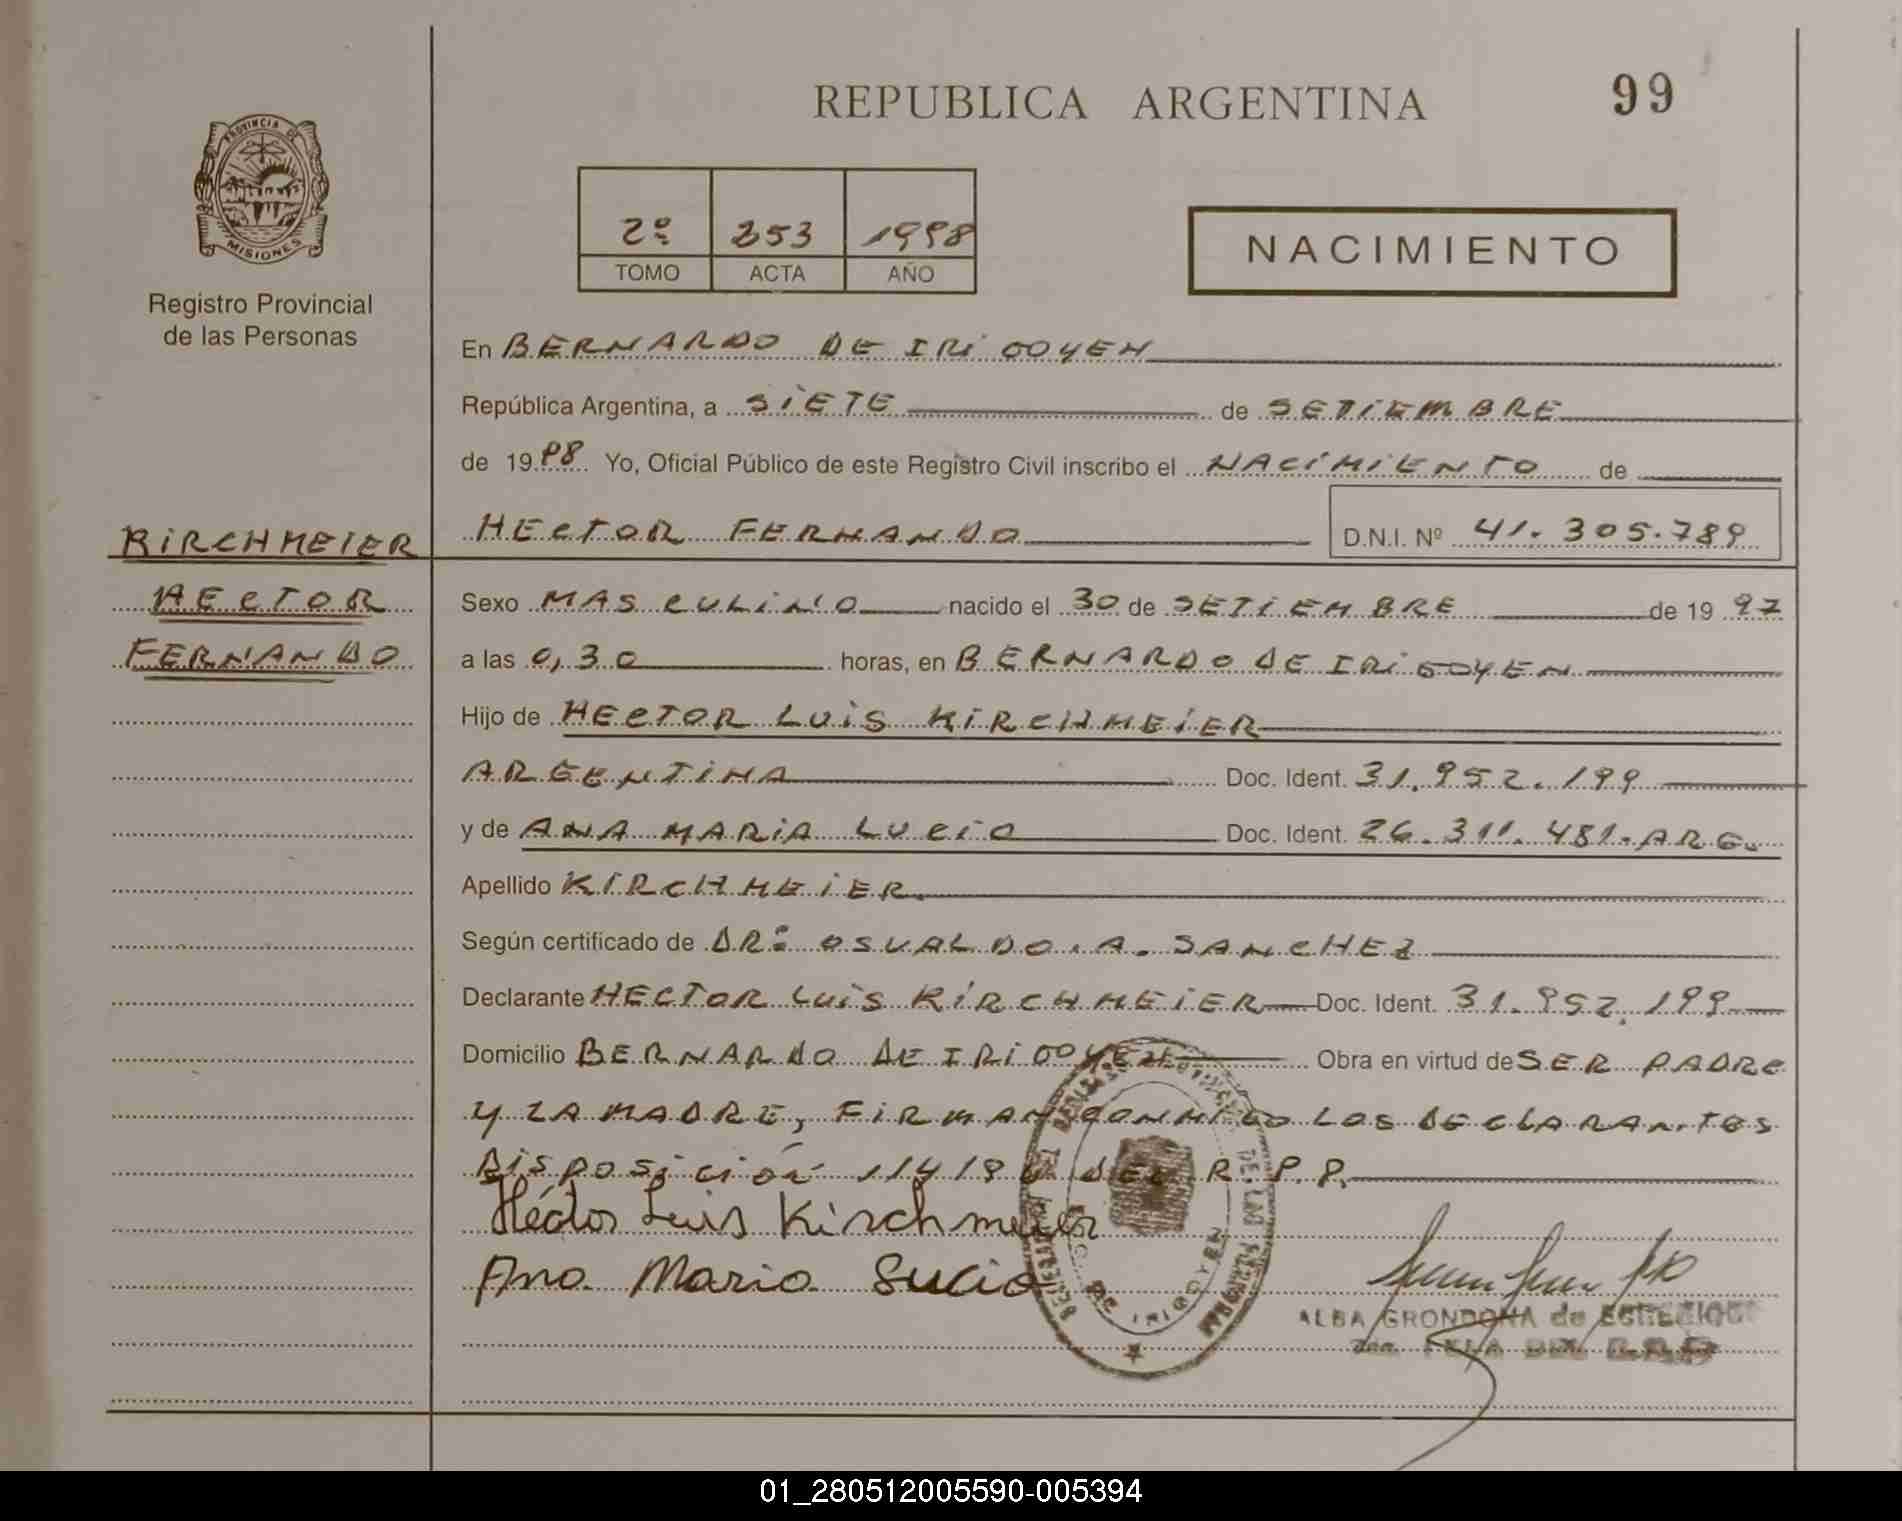 REPUBLICA ARGENTINA
99
PROVINCIA DE
MISIONES
Registro Provincial
de las Personas
2º 253 1998
TOMO ACTA AÑO
NACIMIENTO
En BERNARDO DE IRIGOYEN
República Argentina, a SIETE de SETIEMBRE
de 1998 Yo, Oficial Público de este Registro Civil inscribo el NACIMIENTO de
HECTOR FERNANDO D.N.I. Nº 41.305.789
KIRCHMEIER
HECTOR
FERNANDO
Sexo MASCULINO nacido el 30 de SETIEMBRE de 1997
a las 0,30 horas, en BERNARDO DE IRIGOYEN
Hijo de HECTOR LUIS KIRCHMEIER
ARGENTINA Doc. Ident. 31.952.199
y de ANA MARIA LUCIO Doc. Ident. 26.311.481-ARG.
Apellido KIRCHMEIER
Según certificado de DR: OSVALDO.A. SANCHEZ
Declarante HECTOR LUIS KIRCHMEIER Doc. Ident. 31.952.199
Domicilio BERNARDO DE IRIGOYEN Obra en virtud de SER PADRE
Y LA MADRE, FIRMAN CONMIGO LOS DECLARANTES
DISPOSICIÓN DEL R.P.P.
Héctor Luis Kirchmeier
Ana Maria Lucio
DE LAS PERSONAS
IRIGOYEN
ALBA GRONDONA de
01_280512005590-005394